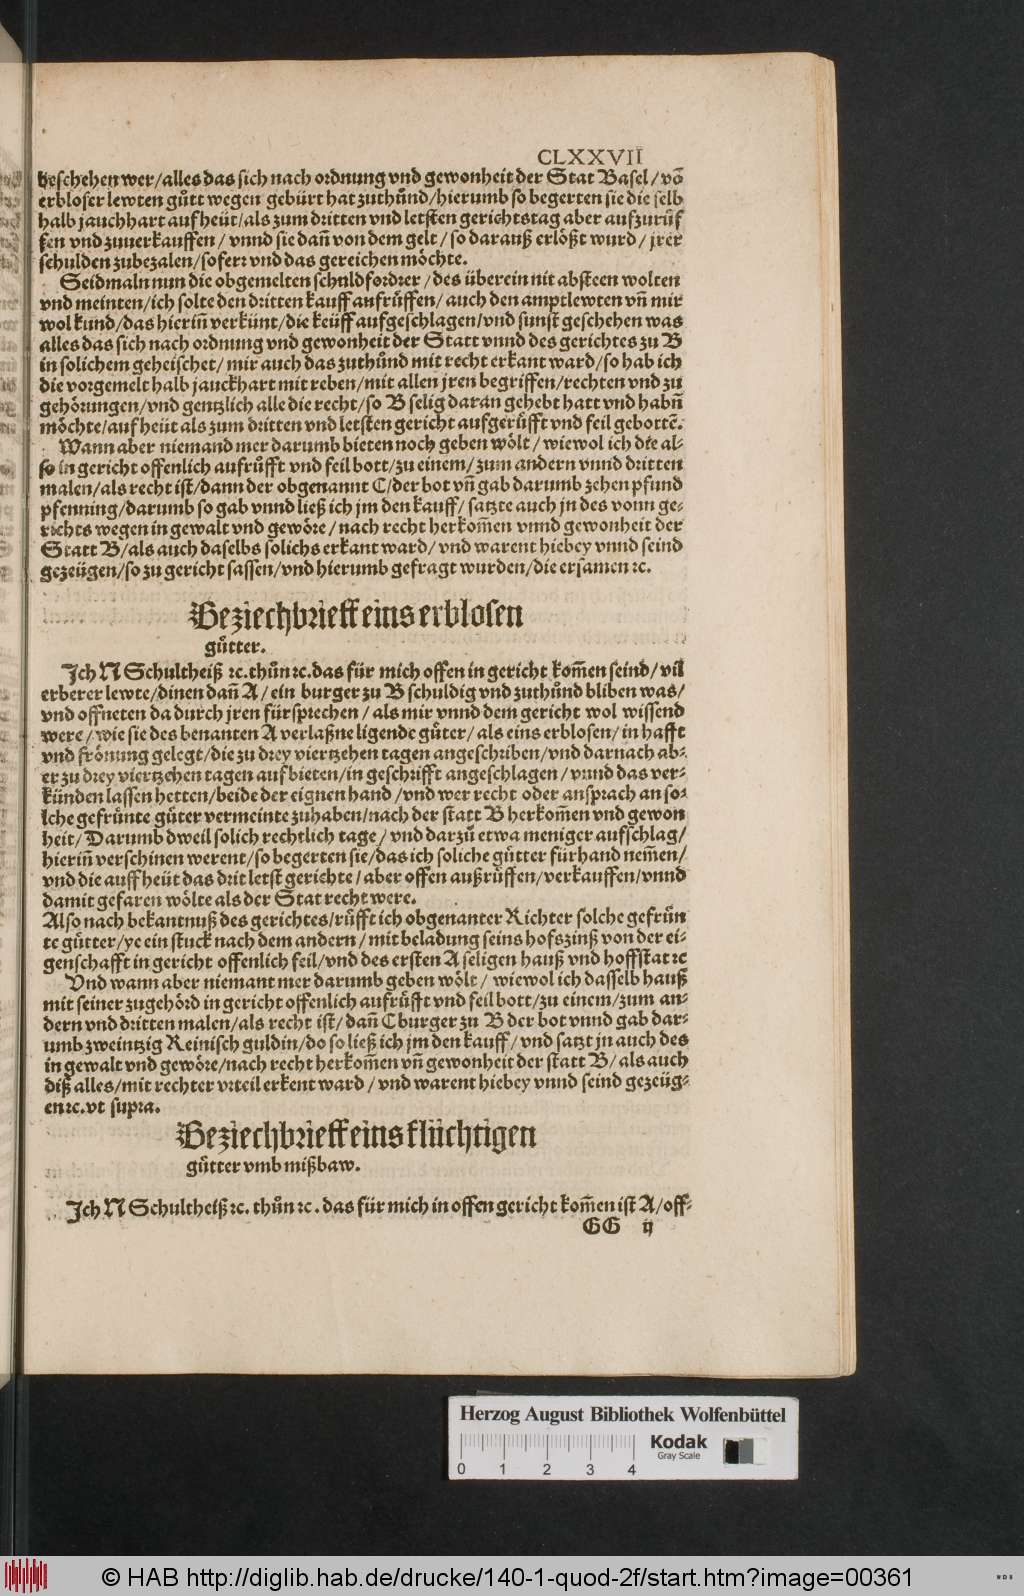 CLXXVII
beschehen wer/alles das sich nach ordnung vnd gewonheit der Stat Basel/võ
erbloser lewten gůtt wegen gebürt hat zuthůnd/hierumb so begerten sie die selb
halb jauchhart auf heüt/als zum dritten vnd letsten gerichtstag aber aufzurůf
fen vnd zuuerkauffen/vnnd sie dañ von dem gelt/so darauß erlößt wurd/jrer
schulden zubezalen/soferr vnd das gereichen möchte.
Seidmaln nun die obgemelten schuldfordrer/des überein nit absteen wolten
vnd meinten/ich solte den dritten kauff aufrůffen/auch den amptlewten vñ mir
wol kund/das hieriñ verkünt/die keüff aufgeschlagen/vnd sunst geschehen was
alles das sich nach ordnung vnd gewonheit der Statt vnnd des gerichtes zu B
in solichem geheischet/mir auch das zuthůnd mit recht erkant ward/so hab ich
die vorgemelt halb jauckhart mit reben/mit allen jren begriffen/rechten vnd zu
gehörungen/vnd gentzlich alle die recht/so B selig daran gehebt hatt vnd habñ
möchte/auf heüt als zum dritten vnd letsten gericht aufgerůfft vnd feil gebottẽ.
Wann aber niemand mer darumb bieten noch geben wölt/wiewol ich die al⸗
so in gericht offenlich aufrůfft vnd feil bott/zu einem/zum andern vnnd dritten
malen/als recht ist/dann der obgenannt C/der bot vñ gab darumb zehen pfund
pfenning/darumb so gab vnnd ließ ich jm den kauff/satzte auch jn des vonn ge⸗
richts wegen in gewalt vnd gewöre/nach recht herkom̃en vnnd gewonheit der
Statt B/als auch daselbs solichs erkant ward/vnd warent hiebey vnnd seind
gezeügen/so zu gericht sassen/vnd hierumb gefragt wurden/die ersamen ꝛc.
Beziechbrieff eins erblosen
gůtter.
Ich N Schultheiß ꝛc. thůn ꝛc. das für mich offen in gericht kom̃en seind/vil
erberer lewte/dinen dañ A/ein burger zu B schuldig vnd zuthůnd bliben was/
vnd offneten da durch jren fürsprechen/als mir vnnd dem gericht wol wissend
were/wie sie des benanten A verlaßne ligende gůter/als eins erblosen/in hafft
vnd frönung gelegt/die zu drey viertzehen tagen angeschriben/vnd darnach ab⸗
er zu drey viertzehen tagen auf bieten/in geschrifft angeschlagen/vnnd das ver⸗
künden lassen hetten/beide der eignen hand/vnd wer recht oder ansprach an so⸗
lche gefrünte gůter vermeinte zuhaben/nach der statt B herkom̃en vnd gewon
heit/Darumb dweil solich rechtlich tage/vnd darzů etwa meniger aufschlag/
hieriñ verschinen werent/so begerten sie/das ich soliche gůtter fürhand nem̃en/
vnd die auff heüt das drit letst gerichte/aber offen außrůffen/verkauffen/vnnd
damit gefaren wölte als der Stat recht were.
Also nach bekantnuß des gerichtes/růfft ich obgenanter Richter solche gefrün
te gůtter/ye ein stuck nach dem andern/mit beladung seins hofszinß von der ei⸗
genschafft in gericht offenlich feil/vnd des ersten A seligen hauß vnd hoffstat ꝛc
Vnd wann aber niemant mer darumb geben wölt/wiewol ich dasselb hauß
mit seiner zugehörd in gericht offenlich aufrůfft vnd feil bott/zu einem/zum an⸗
dern vnd dritten malen/als recht ist/dañ C burger zu B der bot vnnd gab dar⸗
umb zweintzig Reinisch guldin/do so ließ ich jm den kauff/vnd satzt jn auch des
in gewalt vnd gewöre/nach recht herkom̃en vñ gewonheit der statt B/als auch
diß alles/mit rechter vrteil erkent ward/vnd warent hiebey vnnd seind gezeüg⸗
en ꝛc. vt supra.
Beziechbrieff eins flüchtigen
gůtter vmb mißbaw.
Ich N Schultheiß ꝛc. thůn ꝛc. das für mich in offen gericht kom̃en ist A/off⸗
GG ij
Herzog August Bibliothek Wolfenbüttel
Kodak
Gray Scale
0 1 2 3 4
© HAB http://diglib.hab.de/drucke/140-1-quod-2f/start.htm?image=00361